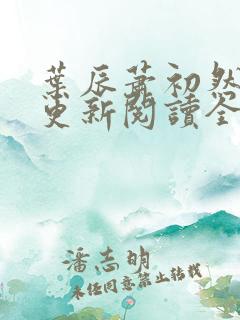 葉辰蕭初然
更新閱讀全
潘志明
未經同意禁止轉載